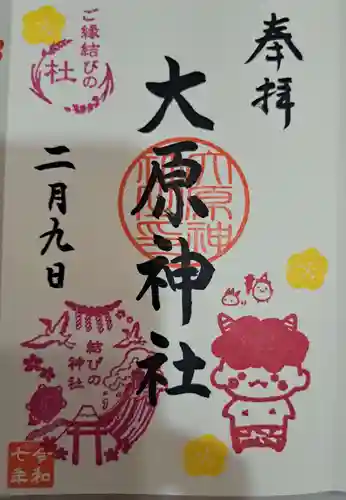 奉拝
大原神社
二月九日
ご縁結びの
杜
大原神
結びの
神社
令和
七年